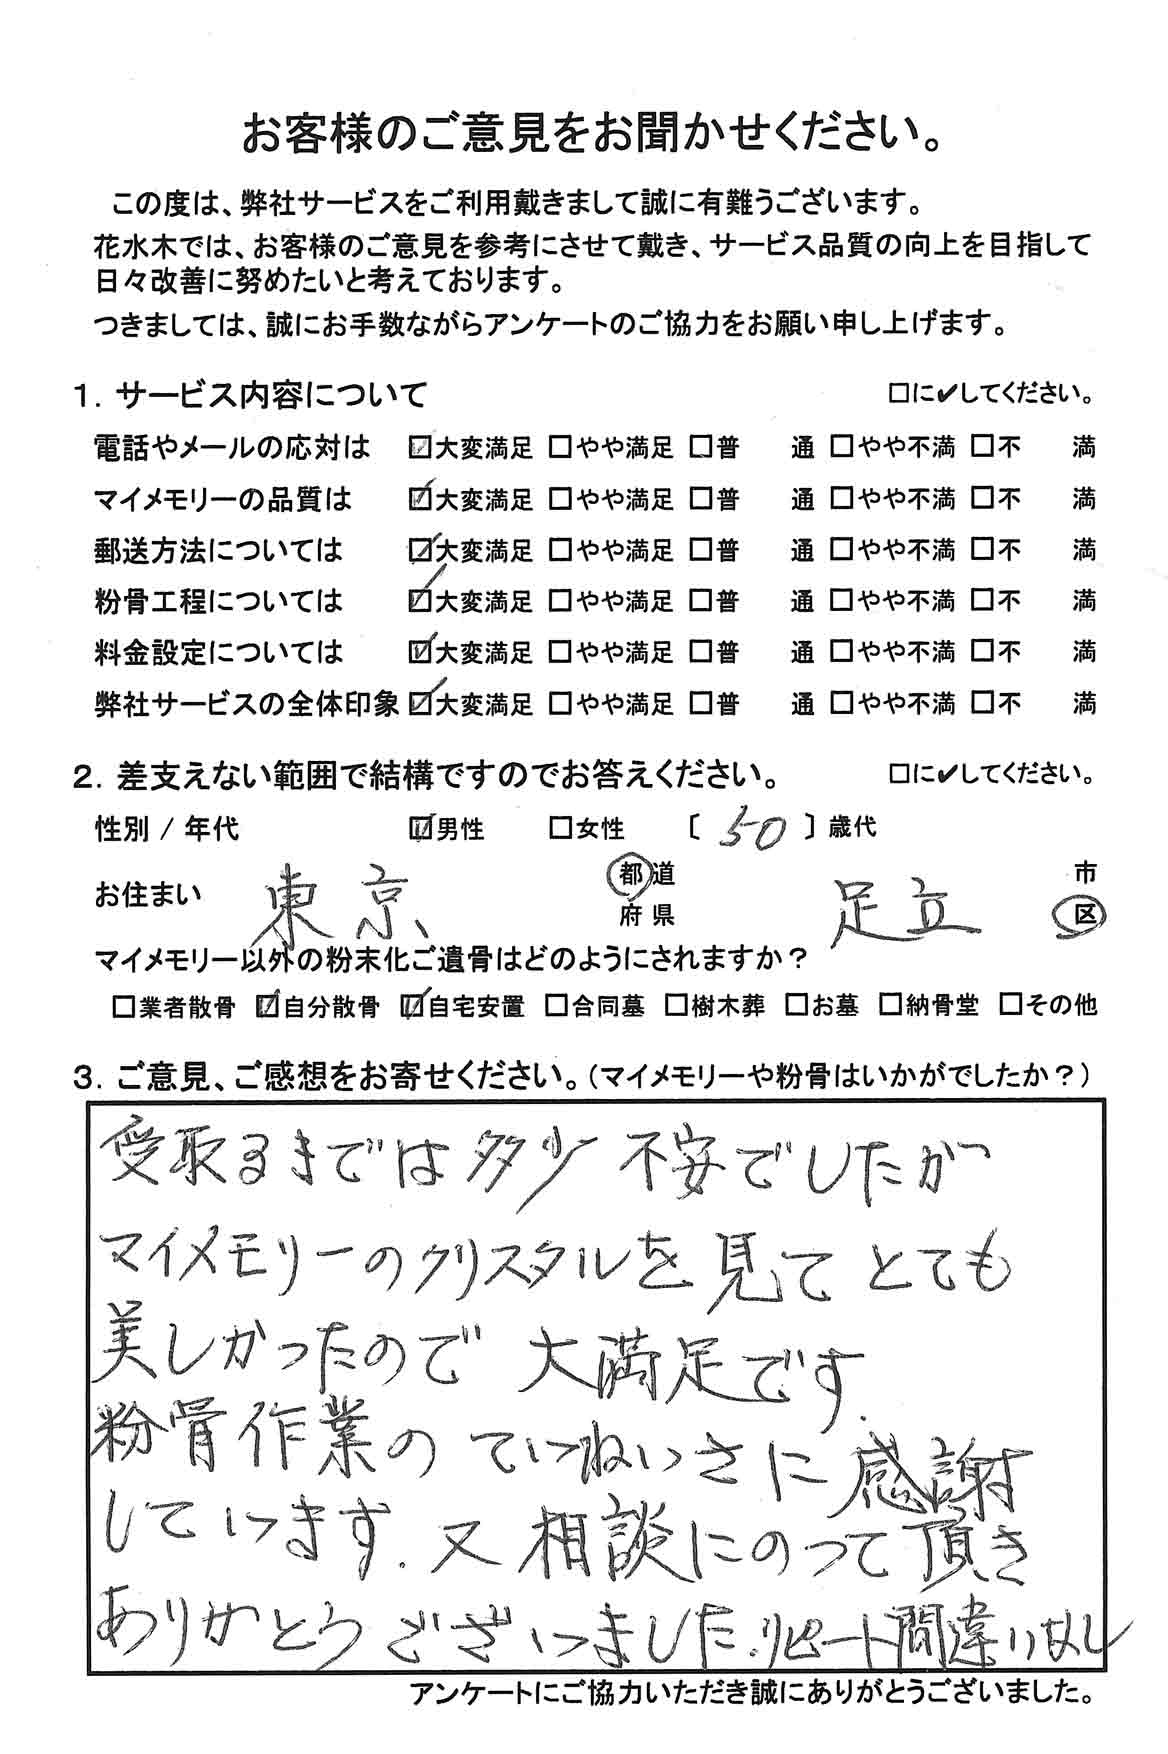 お客様のご意見をお聞かせください。
この度は、弊社サービスをご利用戴きまして誠に有難うございます。
花水木では、お客様のご意見を参考にさせて戴き、サービス品質の向上を目指して
日々改善に努めたいと考えております。
つきましては、誠にお手数ながらアンケートのご協力をお願い申し上げます。
1. サービス内容について □に✔してください。
電話やメールの応対は ☑大変満足 □やや満足 □普 通 □やや不満 □不 満
マイメモリーの品質は ☑大変満足 □やや満足 □普 通 □やや不満 □不 満
郵送方法については ☑大変満足 □やや満足 □普 通 □やや不満 □不 満
粉骨工程については ☑大変満足 □やや満足 □普 通 □やや不満 □不 満
料金設定については ☑大変満足 □やや満足 □普 通 □やや不満 □不 満
弊社サービスの全体印象 ☑大変満足 □やや満足 □普 通 □やや不満 □不 満
2. 差支えない範囲で結構ですのでお答えください。 □に✔してください。
性別 / 年代 ☑男性 □女性 〔 50 〕歳代
お住まい 東京 都道府県 足立 市区
マイメモリー以外の粉末化ご遺骨はどのようにされますか？
□業者散骨 ☑自分散骨 ☑自宅安置 □合同墓 □樹木葬 □お墓 □納骨堂 □その他
3. ご意見、ご感想をお寄せください。（マイメモリーや粉骨はいかがでしたか？）
受取るまでは多少不安でしたが
マイメモリーのクリスタルを見てとても
美しかったので大満足です.
粉骨作業のていねいさに感謝
しています. 又相談にのって頂き
ありがとうございました.リピート間違いなし
アンケートにご協力いただき誠にありがとうございました。